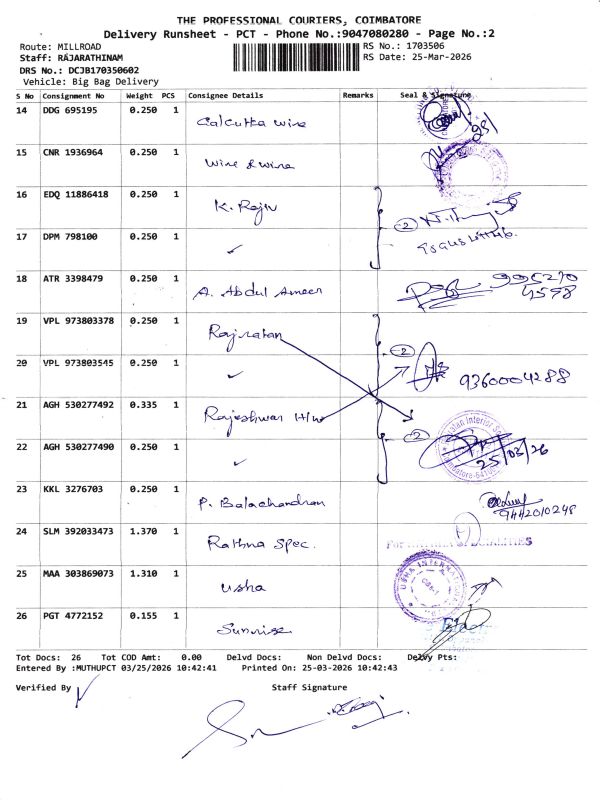 THE PROFESSIONAL COURIERS, COIMBATORE
Delivery Runsheet - PCT - Phone No.:9047080280 - Page No.:2
Route: MILLROAD
RS No.: 1703506
Staff: RAJARATHINAM
RS Date: 25-Mar-2026
DRS No.: DCJB170350602
Vehicle: Big Bag Delivery
S No Consignment No Weight PCS Consignee Details Remarks Seal & Signature
14 DDG 695195 0.250 1 Calcutta wire
15 CNR 1936964 0.250 1 Wire & wire
16 EDQ 11886418 0.250 1 K. Rajiv
17 DPM 798100 0.250 1 ✓ 2
18 ATR 3398479 0.250 1 A. Abdul Ameer 995270
4598
19 VPL 973803378 0.250 1 Rajratan
20 VPL 973803545 0.250 1 ✓ 2 9360004288
21 AGH 530277492 0.335 1 Rajeshwar H/w
22 AGH 530277490 0.250 1 ✓ 2 25/03/26
23 KKL 3276703 0.250 1 P. Balachandran 9442010248
24 SLM 392033473 1.370 1 Rathna Spec.
25 MAA 303869073 1.310 1 Usha USHA INTERNATIONAL
26 PGT 4772152 0.155 1 Sunrise
Tot Docs: 26 Tot COD Amt: 0.00 Delvd Docs: Non Delvd Docs: Delvy Pts:
Entered By :MUTHUPCT 03/25/2026 10:42:41 Printed On: 25-03-2026 10:42:43
Verified By Staff Signature